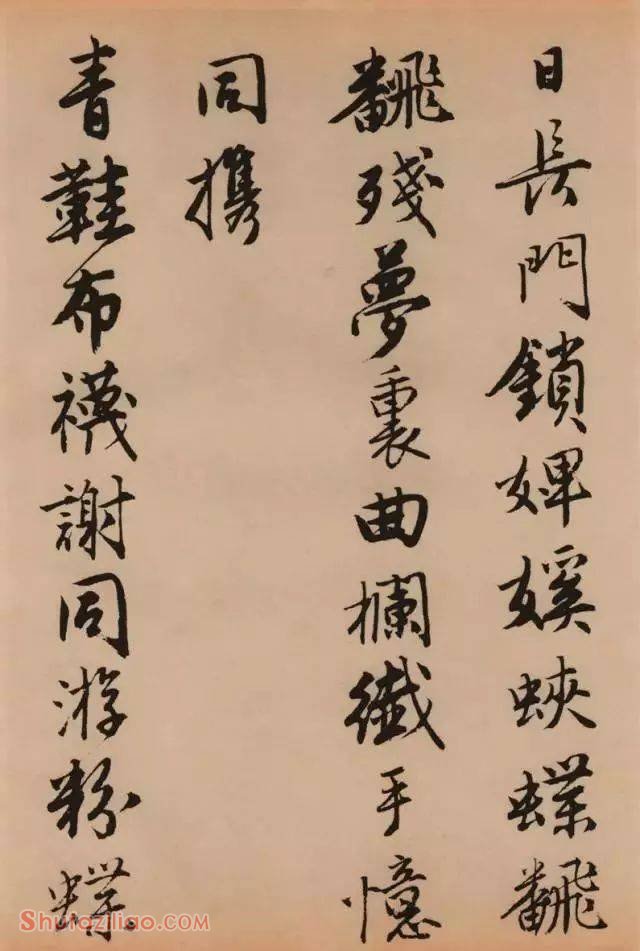 日長門鎖婢媛蛺蝶飜
飜殘夢裏曲欄纖手憶
同攜
青鞋布襪謝同游粉蝶
Shufaziliao.com